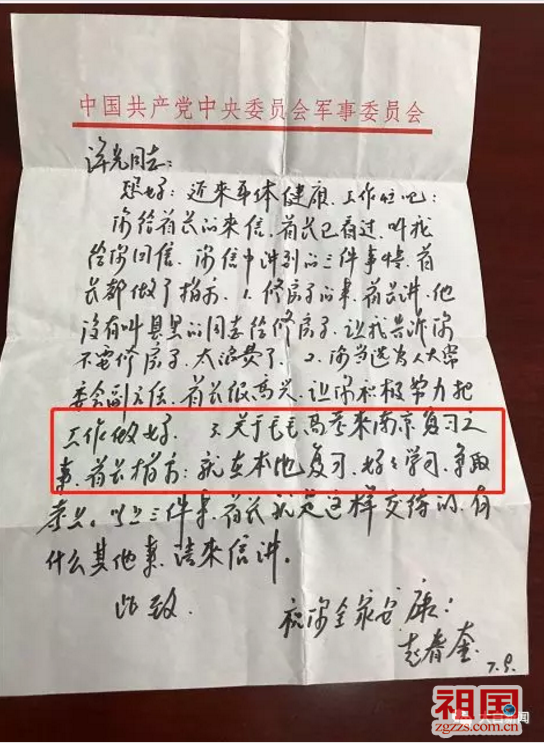 中国共产党中央委员会军事委员会
许光同志：
您好：近来身体健康、工作忙吧！
您给首长的来信、首长已看过、叫我
给您回信、您信中讲到的三件事情、首
长都做了指示、1、修房子的事、首长讲、他
没有叫县里的同志给修房子、让我告诉您
不要修房子、太浪费了、2、您当选为人大常
委会副主任、首长很高兴、让您积极努力把
工作做好、3、关于毛毛高考来南京复习之
事、首长指示：就在本地复习、好好学习、争取
考上。以上三件事、首长就是这样交待的、有
什么其他事、请来信讲。
此致、
祝您全家安康！
赵春奎
7.9.
祖国
zgzzs.com.cn